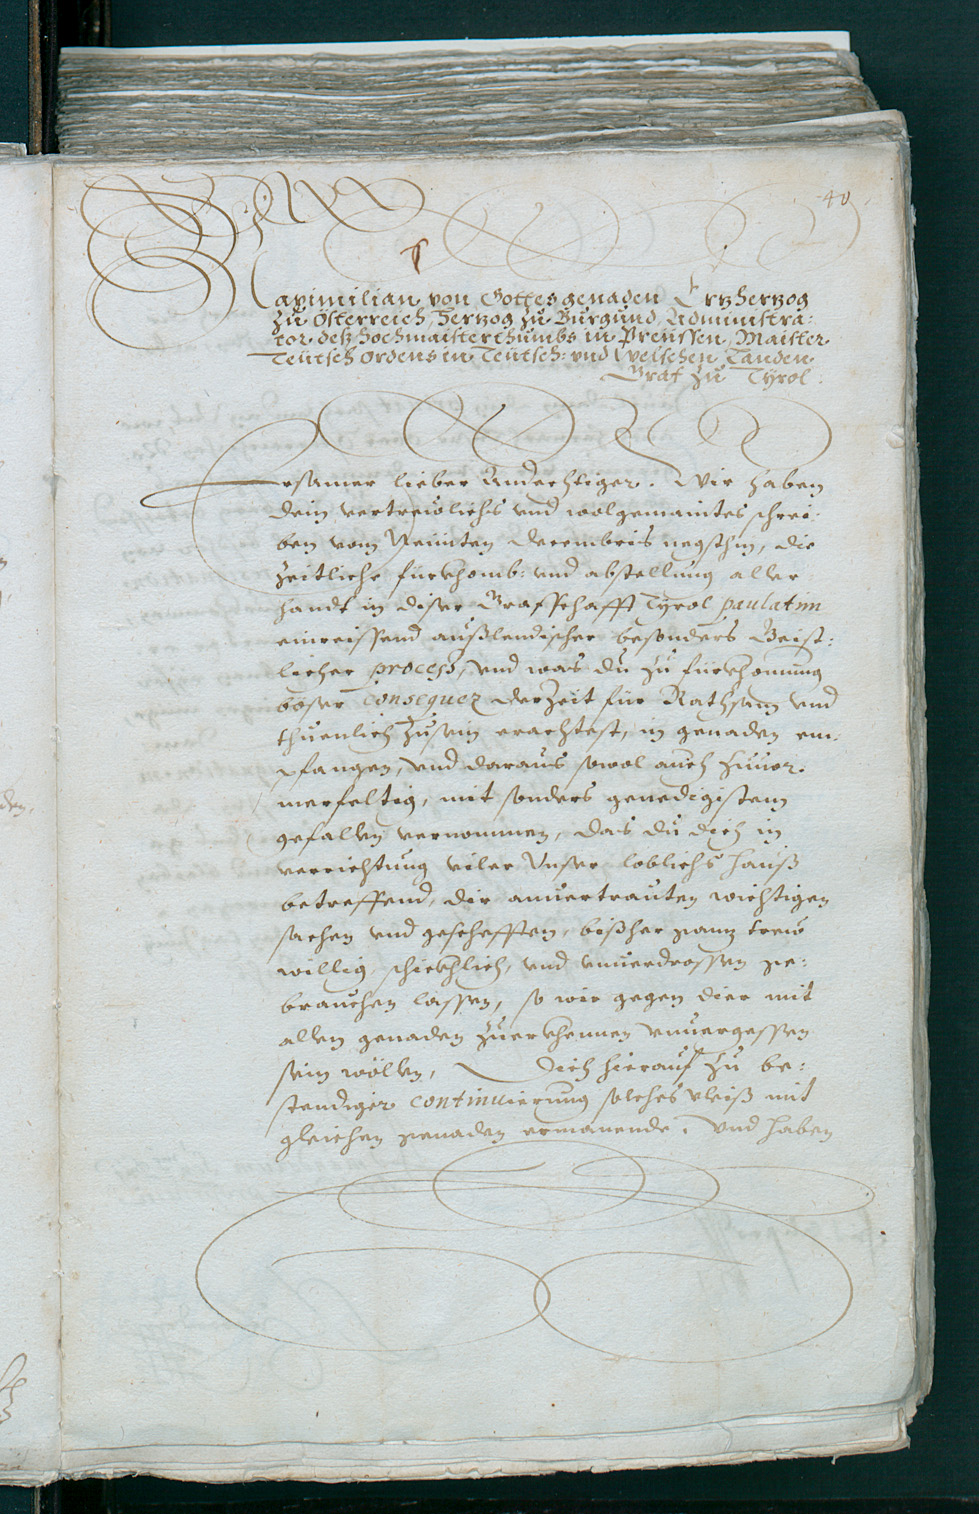 40
Maximilian von Gottes genaden Ertzhertzog
zu Österreich, Hertzog zu Burgund, Administra:
tor deß Hochmaisterthumbs in Preüssen, Maister
Teütsch Ordens in Teütsch: vnd Welschen Landen
Graf zu Tÿrol.
Ersamer lieber Andechtiger. Wir haben
dein vertrewlichs vnd wolgemaintes schrei:
ben vom Neünten Decembris negsthin, die
zeitliche fürkhomb: vnd abstellung aller
handt in diser Graffschafft Tyrol paulatim
einreissend außlendischer besonders Geist:
licher process, vnd was du zu fürkhomung
böser consequez derzeit für Rathsam vnd
thuenlich zusein erachtest, in genaden em:
pfangen, vnd daraus sowol auch hieuor
merfeltig, mit sonders genedigistem
gefallen vernommen, das du dich in
verrichtung viler Vnser loblichs Hauß
betreffend, dir anuertrauten wichtigen
sachen vnd geschefften, bißher gantz trew
willig, schickhlich, vnd vnuerdrossen ge:
brauchen lassen, so wir gegen dier mit
allen genaden zuerkhennen vnuergessen
sein wöllen, Dich hierauf zu be:
stendiger continuierung solches vleiß mit
gleichen genaden ermanende. Und haben